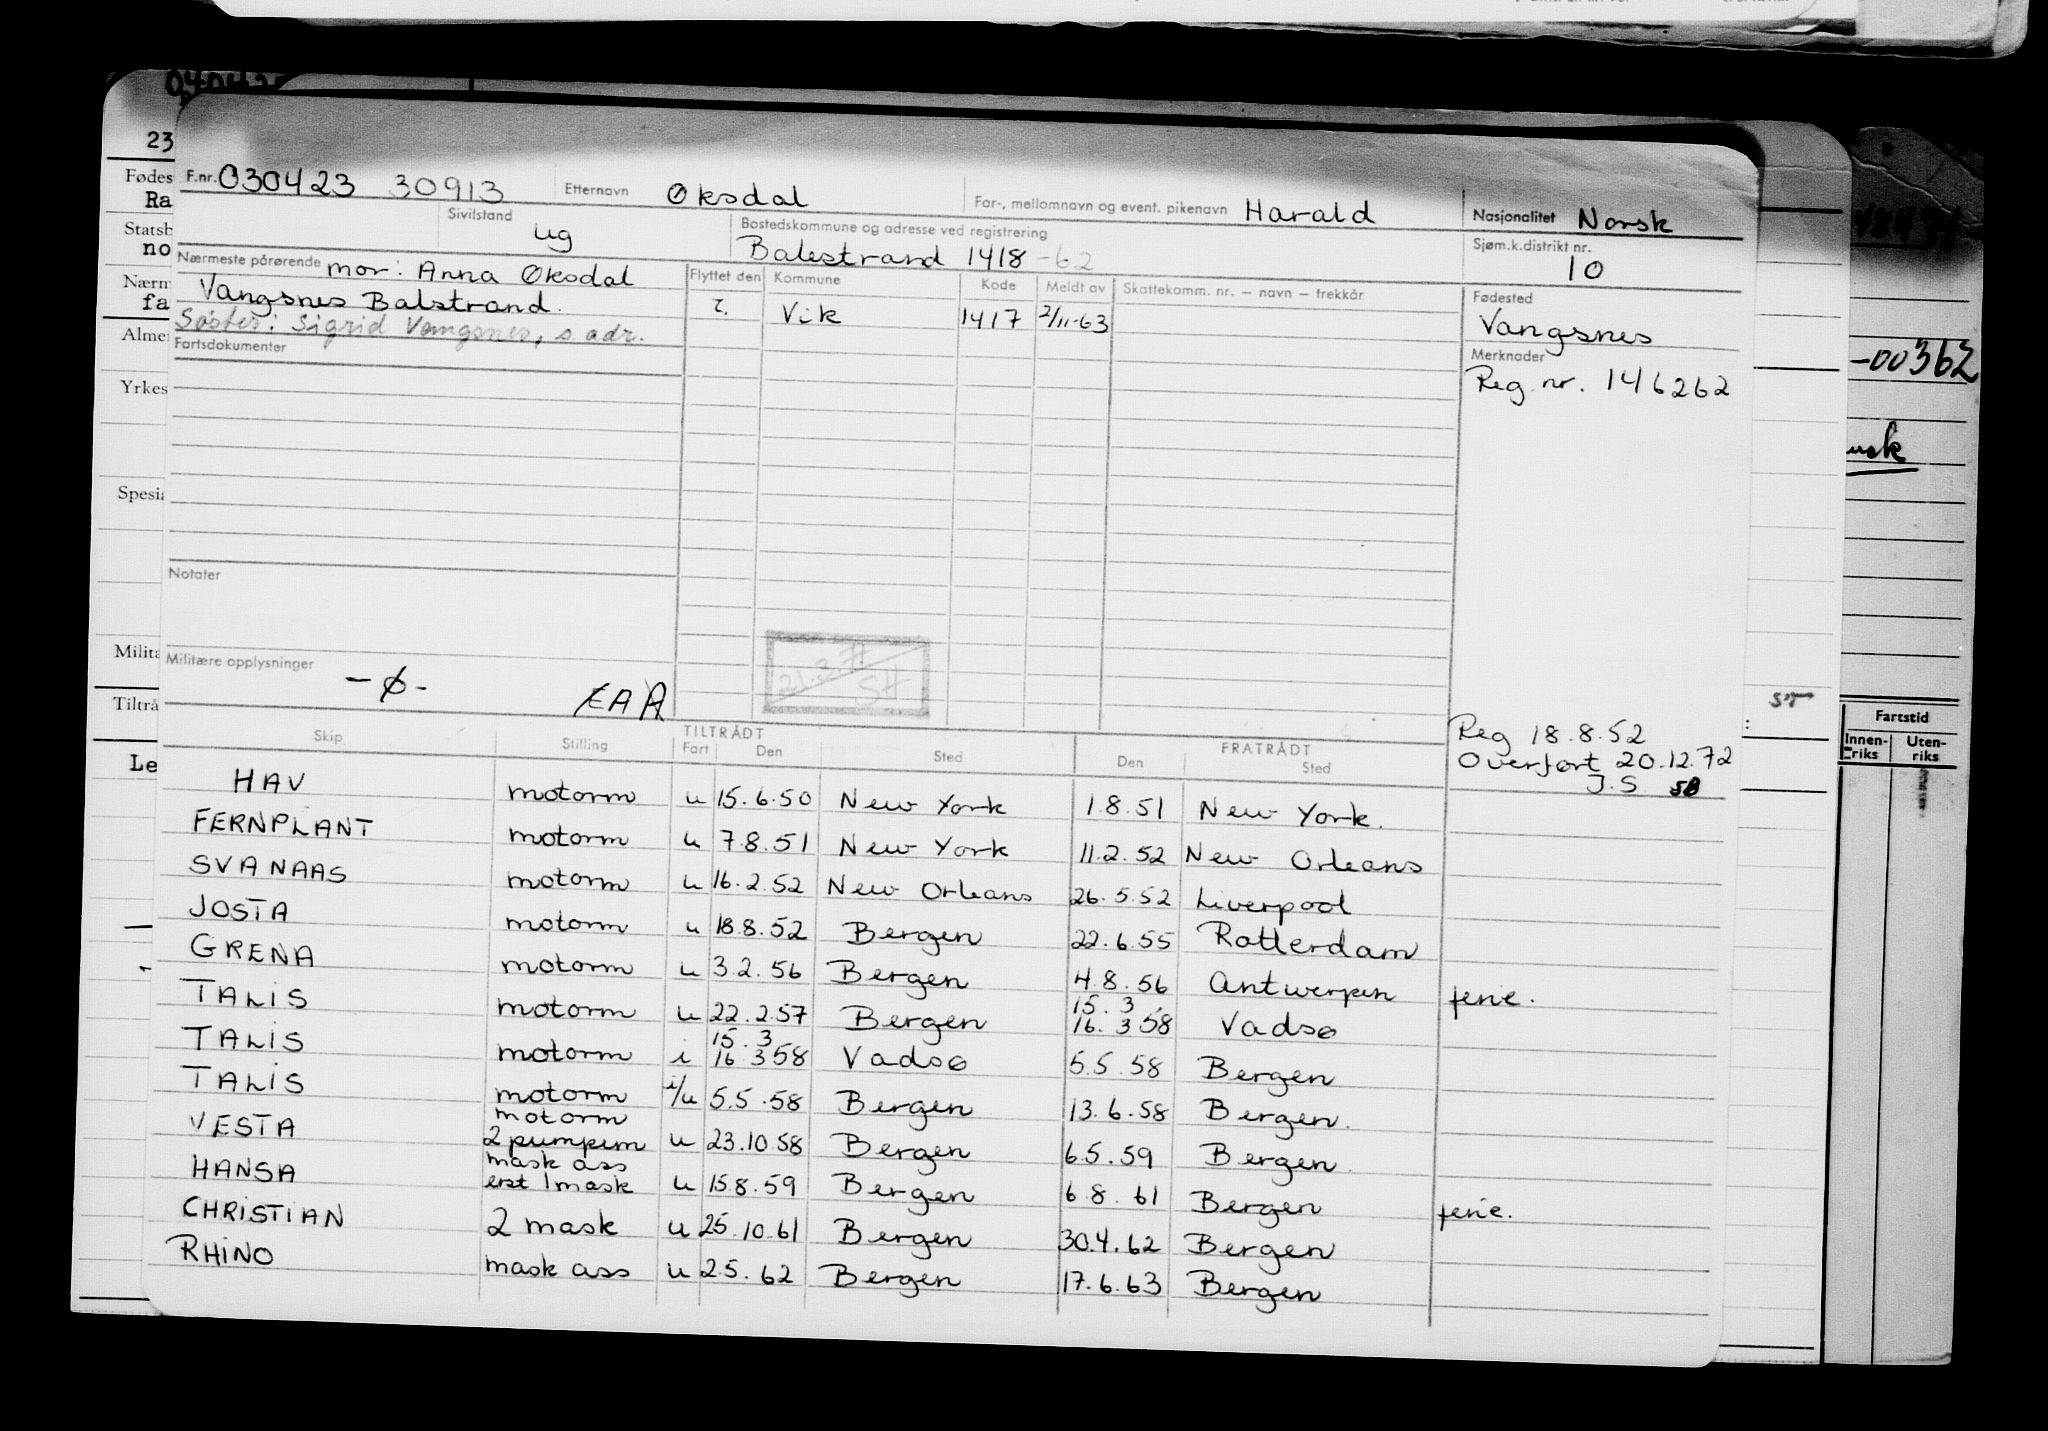 23
Fødes
Ra
Statsb
no
Nærm
fa
Alme
Yrkes
Spesia
Milita
Tiltrå
Le
F.nr. 030423 30913 Etternavn Øksdal For-, mellomnavn og event. pikenavn Harald Nasjonalitet Norsk
Sivilstand ug Bostedskommune og adresse ved registrering Balestrand 1418 -62 Sjøm.k.distrikt nr. 10
Nærmeste pårørende mor: Anna Øksdal Flyttet den Kommune Kode Meldt av Skattekomm. nr. – navn – trekkår Fødested
Vangsnes Balstrand. Vik 1417 2/11-63 Vangsnes
Søster: Sigrid Vangsnes, s. adr.
Fartsdokumenter Merknader
Reg. nr. 146262
Notater
21.3.77
SH
Militære opplysninger -ø- EAA
Reg 18.8.52
Overført 20.12.72
J.S SB
Skip Stilling TILTRÅDT Fart Den Sted FRATRÅDT Den Sted
HAV motorm u 15.6.50 New York 1.8.51 New York.
FERNPLANT motorm u 7.8.51 New York 11.2.52 New Orleans
SVANAAS motorm u 16.2.52 New Orleans 26.5.52 Liverpool
JOSTA motorm u 18.8.52 Bergen 22.6.55 Rotterdam
GRENA motorm u 3.2.56 Bergen 4.8.56 Antwerpen ferie.
TALIS motorm u 22.2.57 Bergen 15.3 16.3 58 Vadsø
TALIS motorm i 15.3 16.3 58 Vadsø 5.5.58 Bergen
TALIS motorm i/u 5.5.58 Bergen 13.6.58 Bergen.
VESTA motorm 2 pumpem u 23.10.58 Bergen 6.5.59 Bergen.
HANSA mask ass erst 1 mask u 15.8.59 Bergen 6.8.61 Bergen ferie.
CHRISTIAN 2 mask u 25.10.61 Bergen 30.4.62 Bergen
RHINO mask ass u 2.5.62 Bergen 17.6.63 Bergen
-00362
Fartstid
Innen-
riks
Uten-
riks